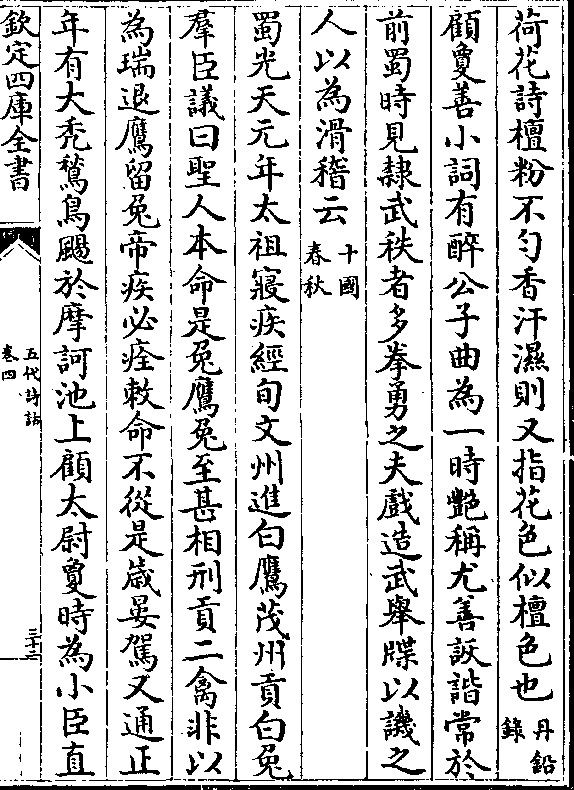 荷花詩檀粉不勻香汗濕則又指花色似檀色也丹鉛錄
顧敻善小詞有醉公子曲為一時艷稱尤善詼諧常於
前蜀時見隷武秩者多拳勇之夫戲造武舉牒以譏之
人以為滑稽云十國春秋
蜀光天元年太祖寢疾經旬文州進白鷹茂州貢白兔
羣臣議曰聖人本命是兔鷹兔至甚相刑貢二禽非以
為瑞退鷹留兔帝疾必痊敕命不從是歲晏駕又通正
年有大禿鶖鳥颺於摩訶池上顧太尉敻時為小臣直
欽定四庫全書
五代詩話
卷四
三十二